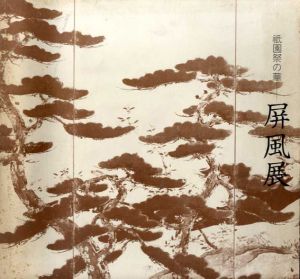 祇園祭の華
屏風展